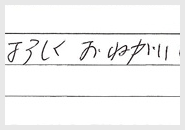 よろしく おねがい